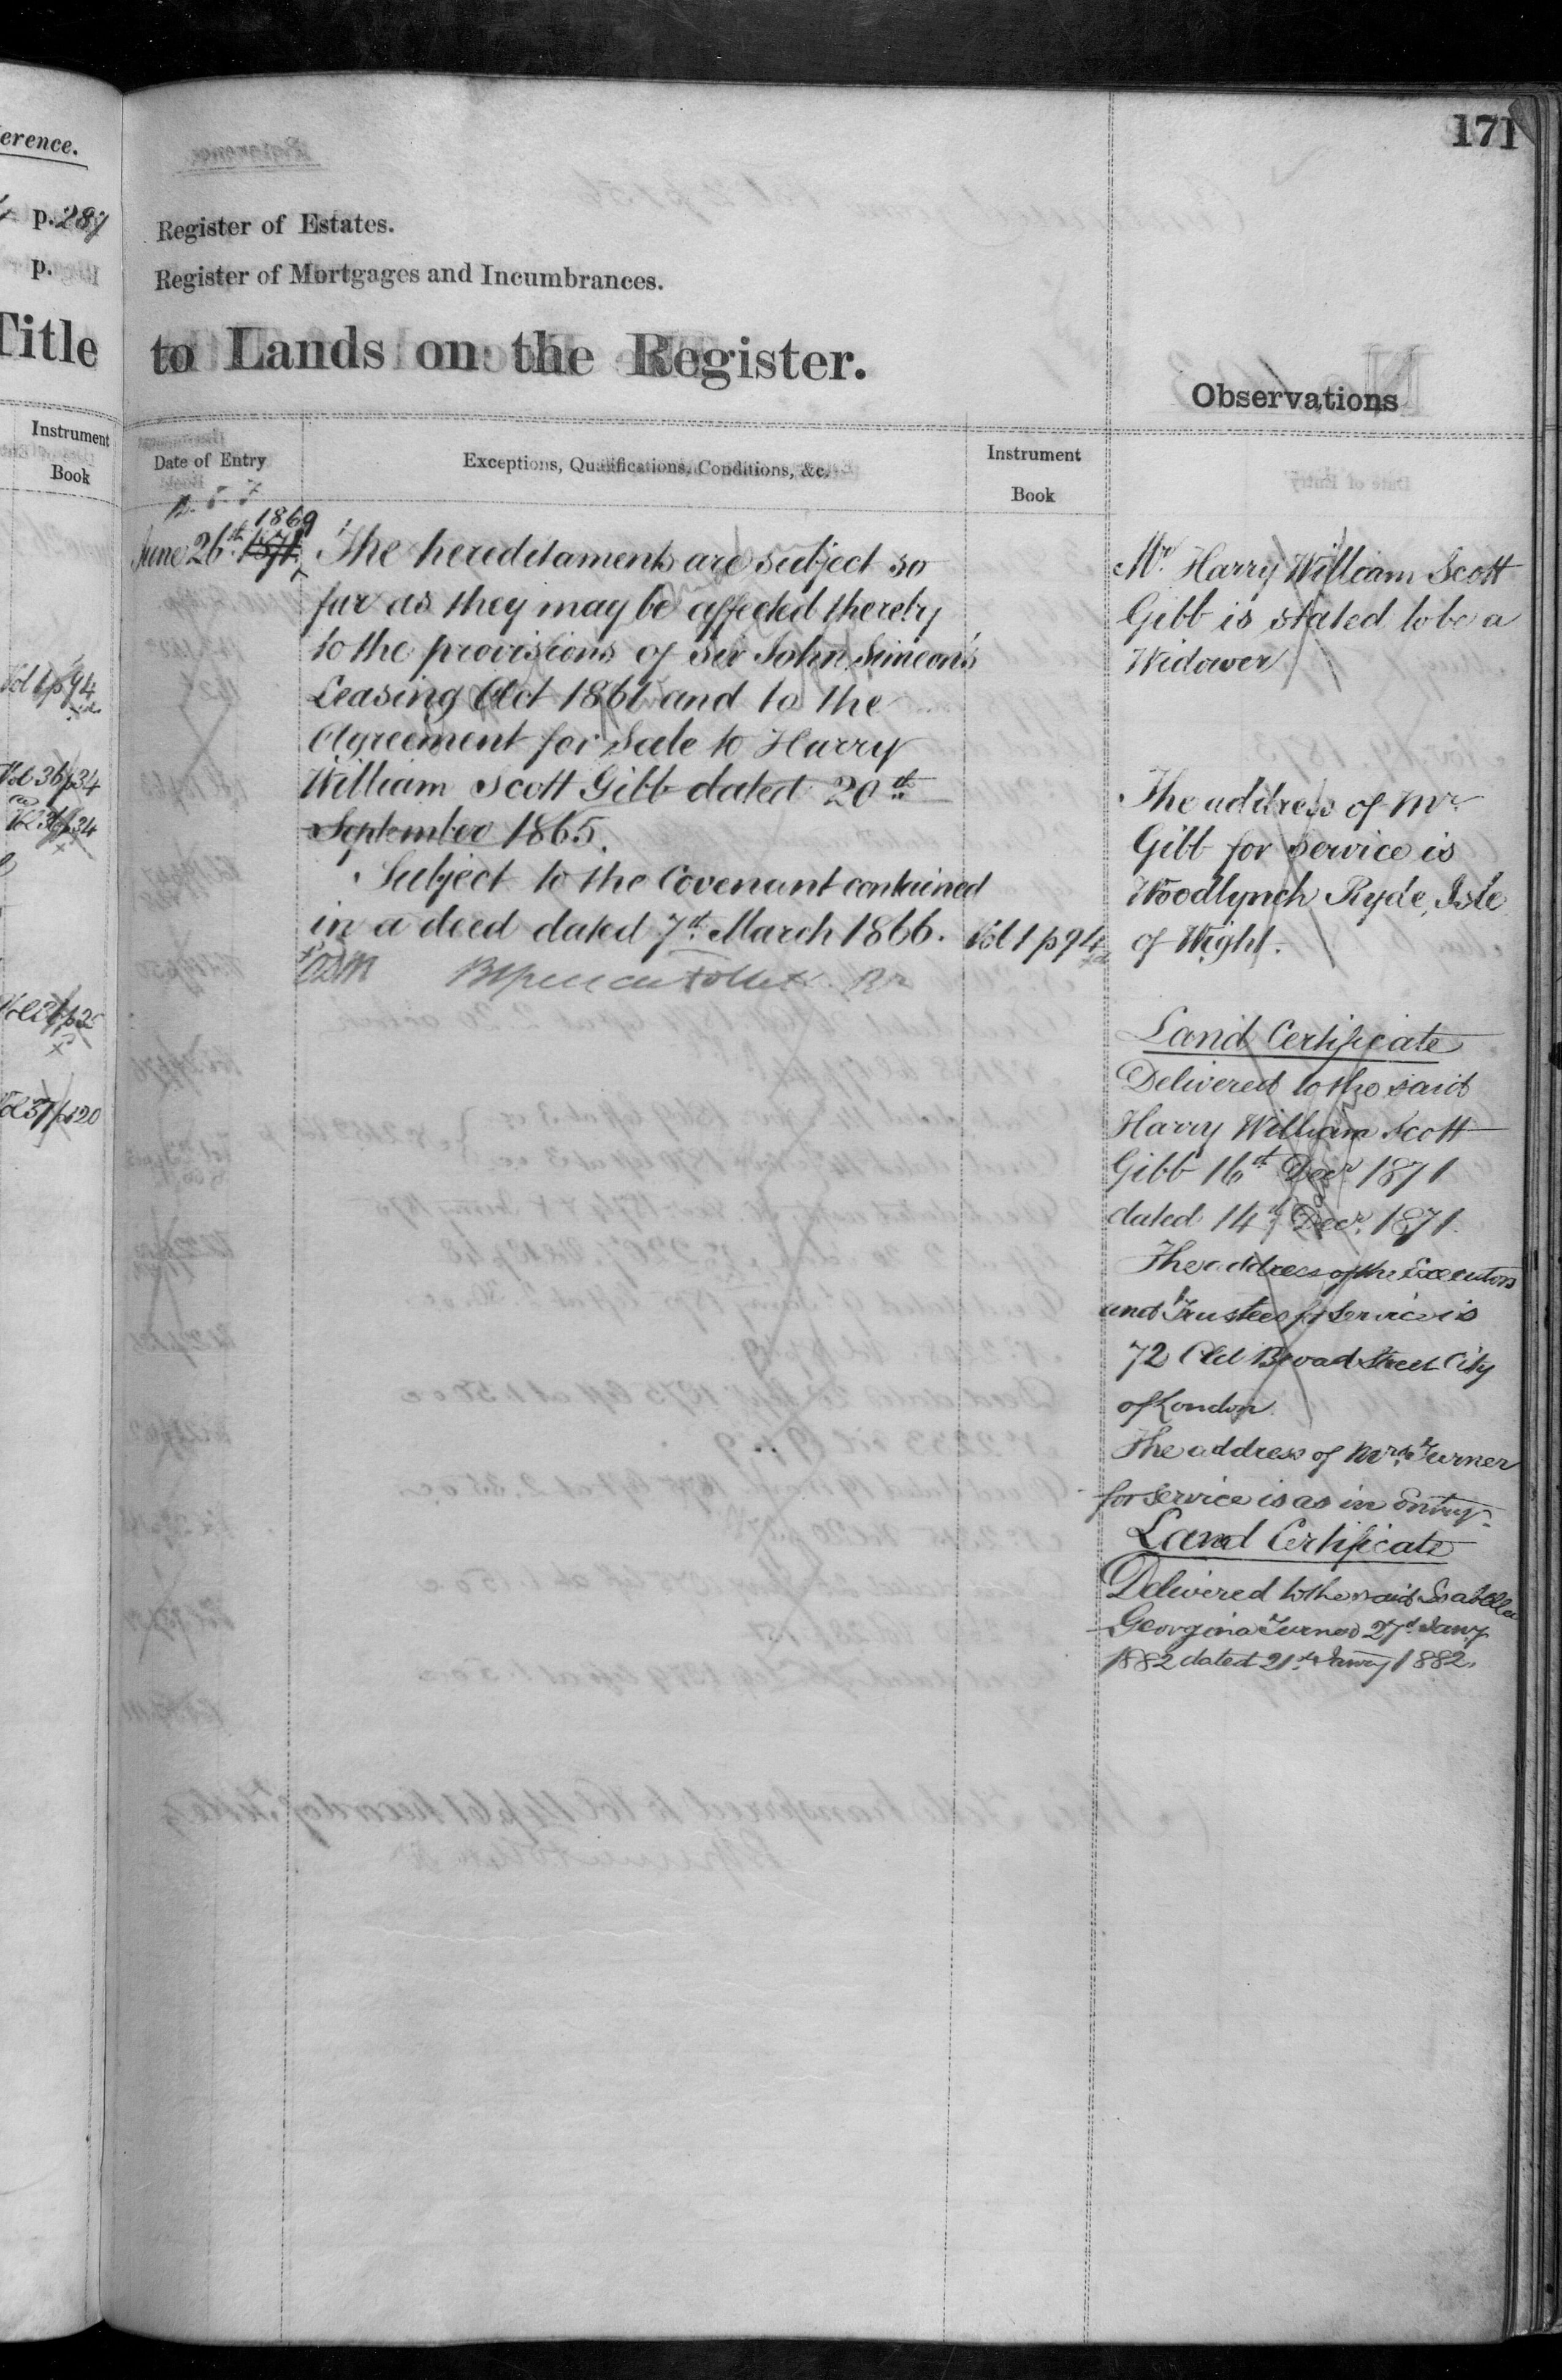 erence.
p. 287
p.
Title
Instrument
Book
Vol 1 p 94
Vol 36 p 34
Vol 36 p 34
Vol 37 p 120
171
Register of Estates.
Register of Mortgages and Incumbrances.
to Lands on the Register.
Observations
Date of Entry
Exceptions, Qualifications, Conditions, &c.
Instrument
Book
1869
June 26th 1871
The hereditaments are subject so
far as they may be affected thereby
to the provisions of Sir John Simeon's
Leasing Act 1861 and to the
Agreement for Sale to Harry
William Scott Gibb dated 20th
September 1865.
Subject to the Covenant contained
in a deed dated 7th March 1866.
Vol 1 p 94
Mr Harry William Scott
Gibb is stated to be a
Widower
The address of Mr
Gibb for service is
Woodlynch Ryde, Isle
of Wight.
Land Certificate
Delivered to the said
Harry William Scott
Gibb 16th Decr 1871
dated 14th Decr. 1871.
The address of the Executors
and Trustees for Service is
72 Old Broad Street City
of London.
The address of Mrs Turner
for service is as in Entry.
Land Certificate
Delivered to the said Isabella
Georgina Turner 27th Jany
1882 dated 21st Jany 1882.